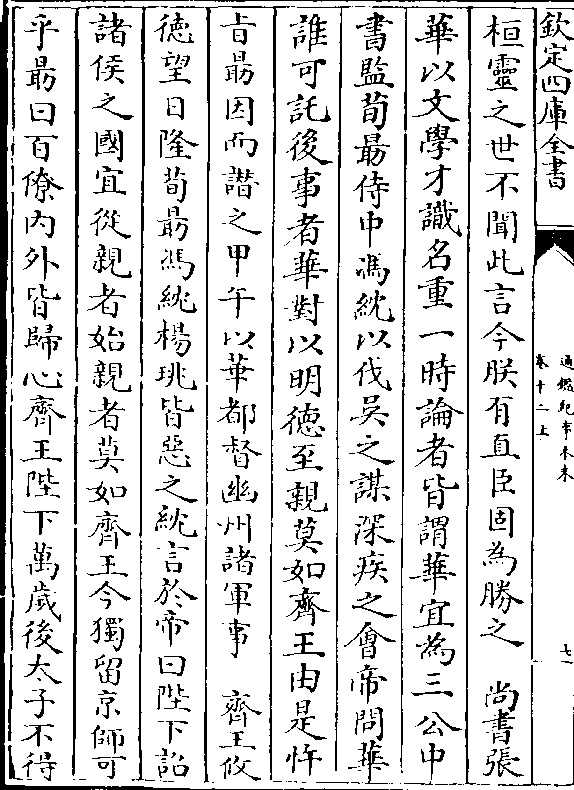 欽定四庫全書
通鑑紀事本末
卷十二上
七
桓靈之世不聞此言今朕有直臣固為勝之　尚書張
華以文學才識名重一時論者皆謂華宜為三公中
書監荀勗侍中馮紞以伐吳之謀深疾之會帝問華
誰可託後事者華對以明德至親莫如齊王由是忤
旨勗因而譖之甲午以華都督幽州諸軍事　齊王攸
德望日隆荀勗馮紞楊珧皆惡之紞言於帝曰陛下詔
諸侯之國宜從親者始親者莫如齊王今獨留京師可
乎勗曰百僚內外皆歸心齊王陛下萬歲後太子不得